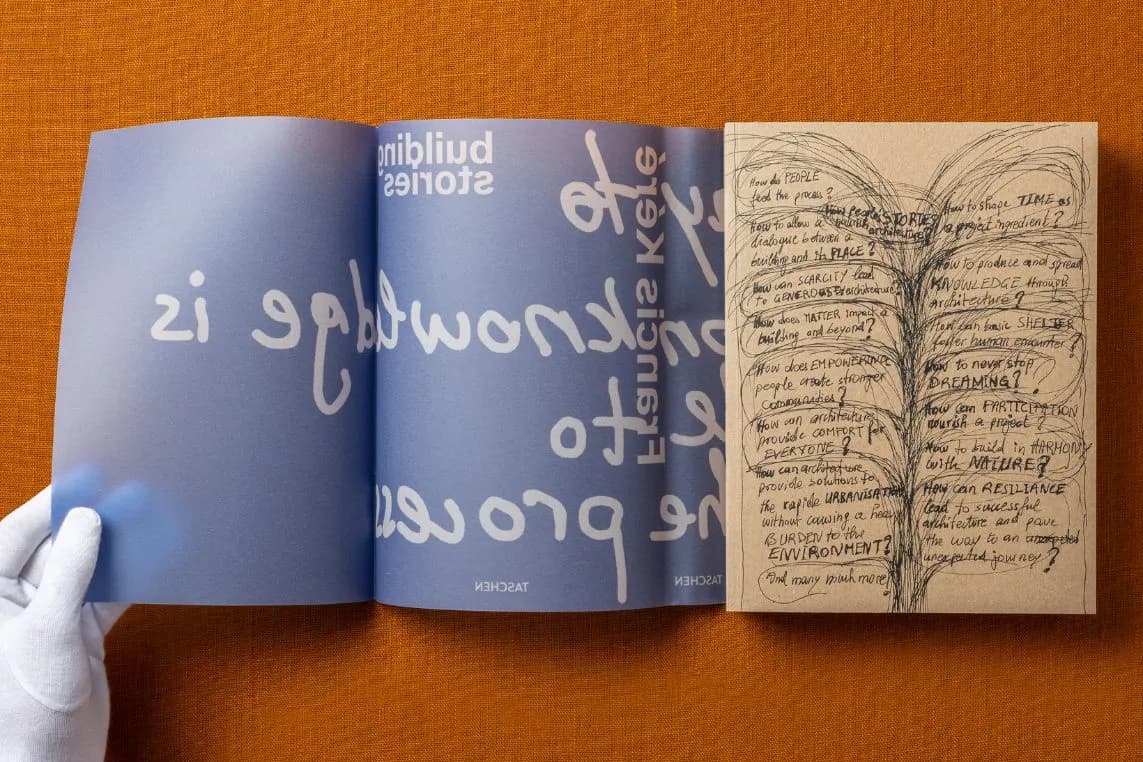 building
stories
to
knowledge is
to
process
TASCHEN
Francis Kéré
TASCHEN
How do PEOPLE
feed the process?
How people's STORIES
nourish architecture?
How to allow a
dialogue between a
building and its PLACE?
How can SCARCITY lead
to GENEROUS architecture?
How does MATTER impact a
building and beyond?
How does EMPOWERING
people create stronger
communities?
How can architecture
provide COMFORT for
EVERYONE?
How can architecture
provide solutions to
the rapide URBANISATION
without causing a heavy
BURDEN to the
ENVIRONMENT?
And many much more
How to shape TIME as
a project ingredient?
How to produce and spread
KNOWLEDGE through
architecture?
How can basic SHELTER
foster human encounter?
How to never stop
DREAMING?
How can PARTICIPATION
nourish a project?
How to build in HARMONY
with NATURE?
How can RESILIANCE
lead to successful
architecture and pave
the way to an
unexpected journey?